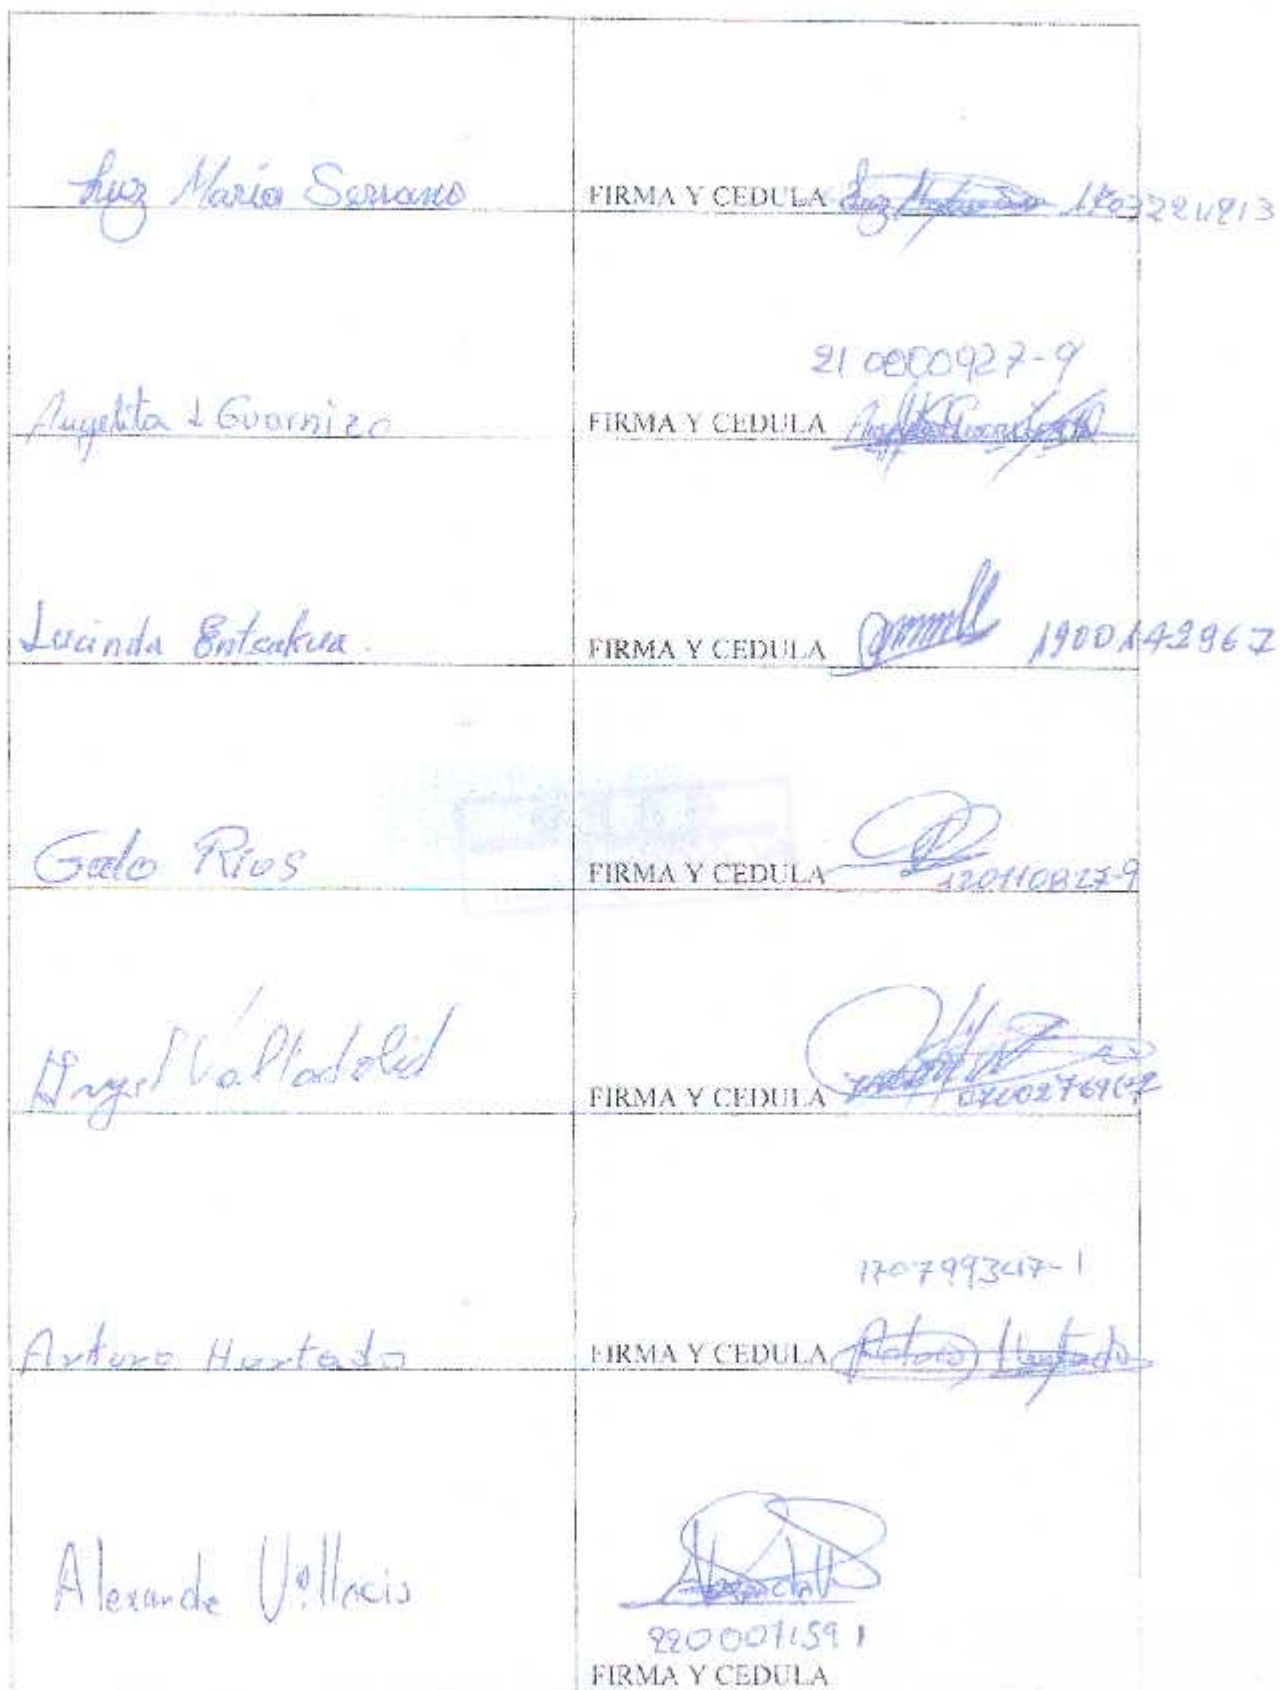 Luz María Serrano FIRMA Y CEDULA
21 0000927-9
Angelita L Guarnizo FIRMA Y CEDULA
Lucinda Entsakua. FIRMA Y CEDULA 1900142967
Galo Ríos FIRMA Y CEDULA 120110827-9
Angel Valladolid FIRMA Y CEDULA
170799347-1
Arturo Hurtado FIRMA Y CEDULA Arturo Hurtado
Alexande Villacis
FIRMA Y CEDULA